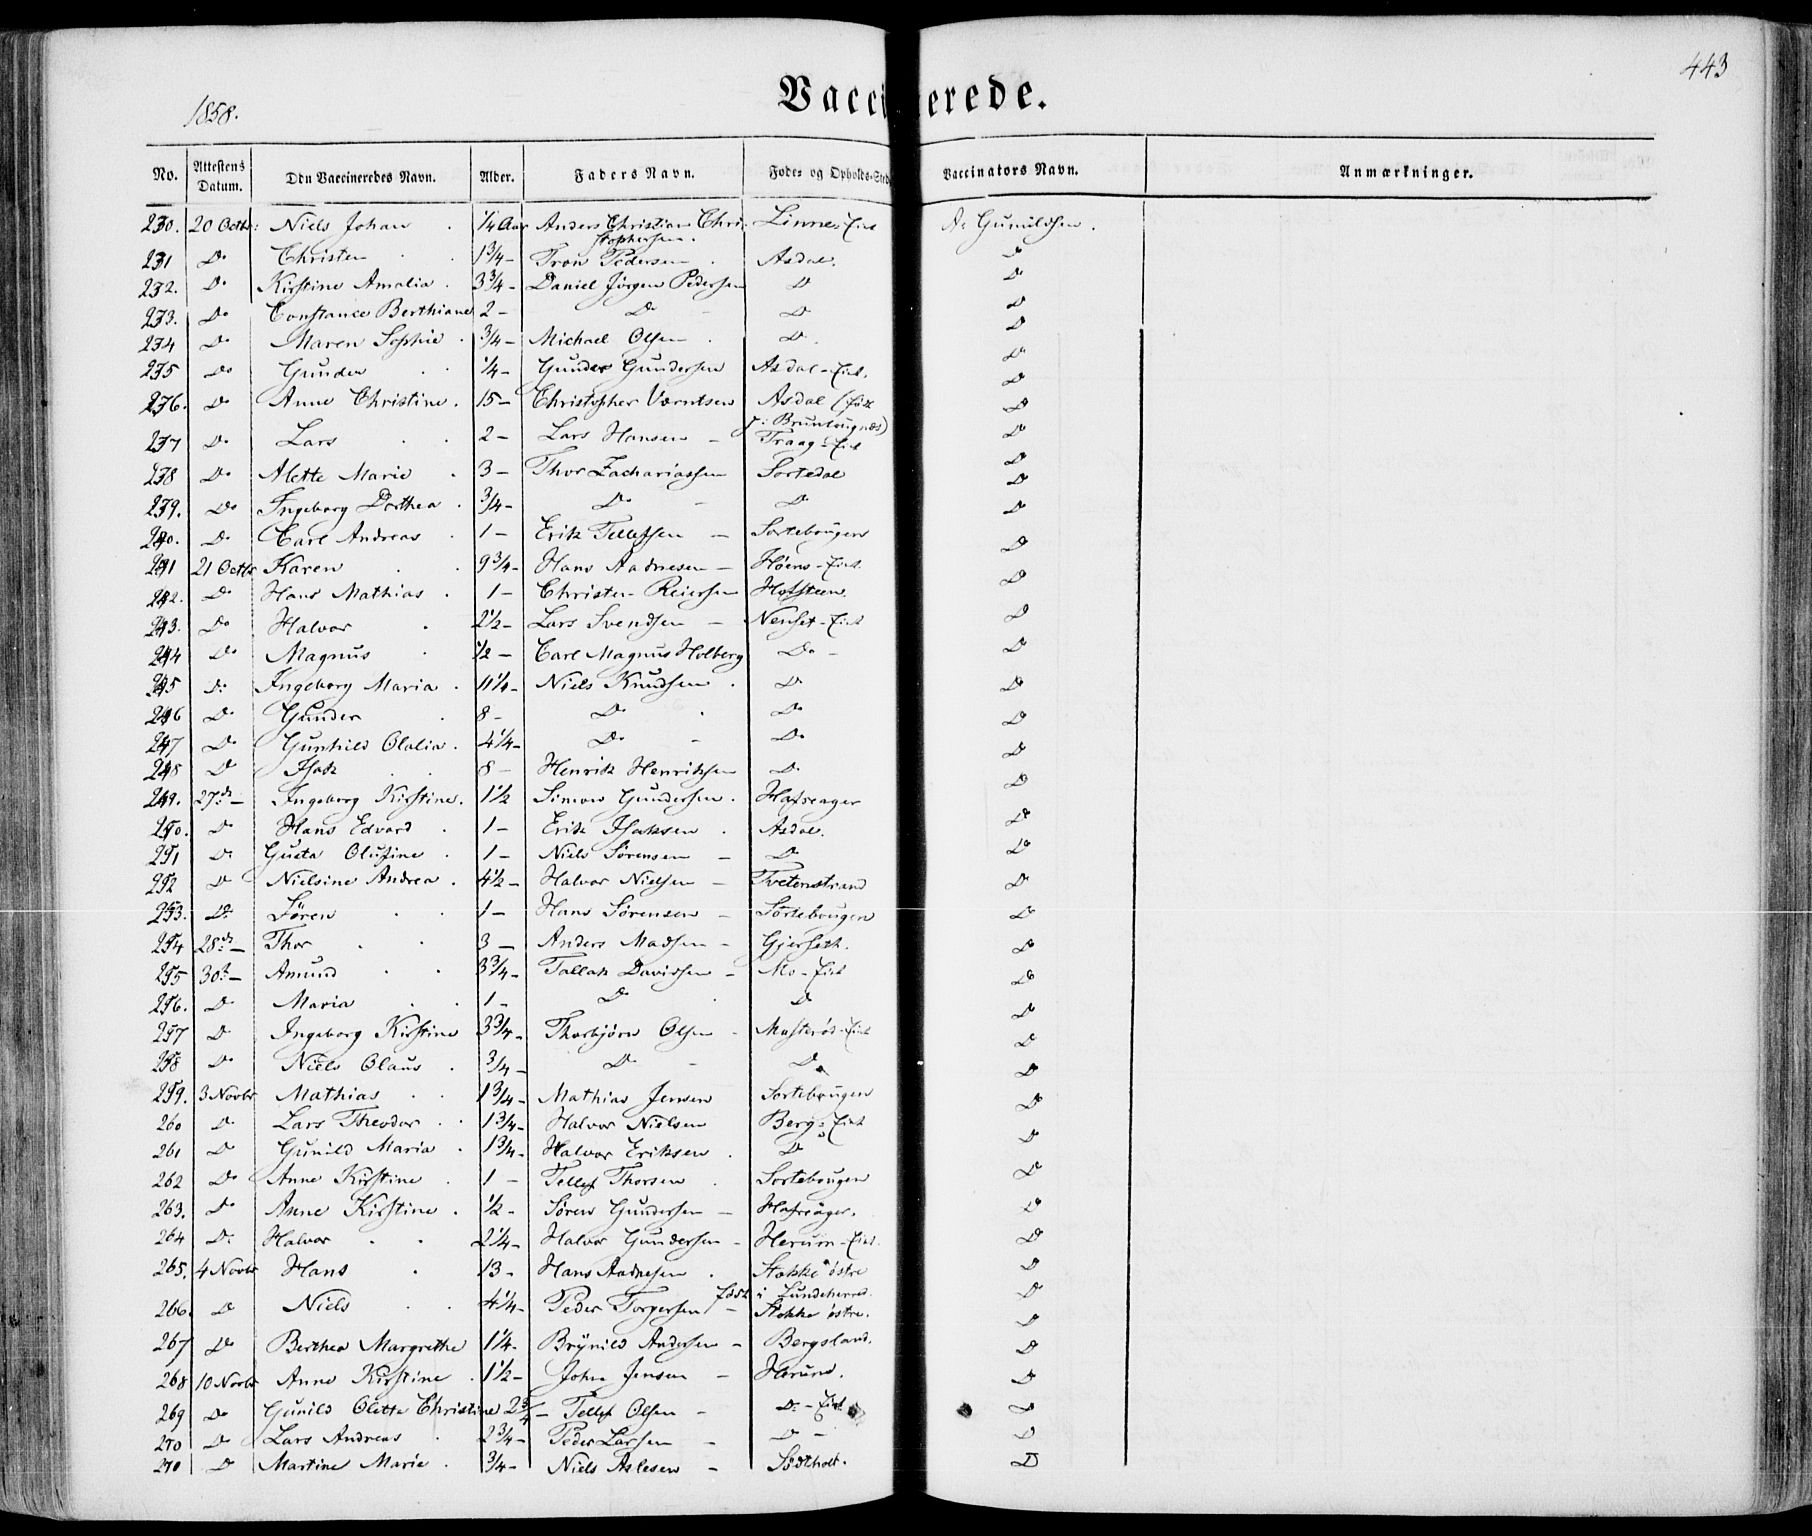 443
1858.
Vaccinerede.
No. | Attestens Datum. | Den Vaccineredes Navn. | Alder. | Faders Navn. | Føde- og Opholds-Sted | Vaccinators Navn. | Anmærkninger.
230. 20 Octbr: Niels Johan 1/4 Aar Anders Christian Chri- Linnes Eiet A: Gunuldsen.
stophersen.
231 Do Christen 1 3/4 - Tron Pedersen Asdal. Do
232. Do Kirstine Amalia 3 3/4 - Daniel Jörgen Pedersen Do Do
233. Do Constance Berthiane 2 - Do - Do Do
234 Do Maren Sophie 3/4 - Michael Olsen Do Do
235 Do Gunder 1/4 - Gunder Gundersen Asdal-Eiet. Do
236. Do Anne Christine. 15 - Christopher Værntsen Asdal (født Do
237 Do Lars 2 - Lars Hansen - Traag-Eiet Do
238 Do Mette Marie 3 - Thor Zachariassen Sortedal Do
239. Do Ingeborg Dorthea 3/4 - Do - Do Do
240. Do Carl Andreas 1 - Erik Tellefsen - Sortebougen Do
241 21 Octbr Karen 9 3/4 - Hans Aadnesen - Høens-Eiet Do
242. Do Hans Mathias 1 - Christen Reiersen Hofsteen. Do
243. Do Halvor 2 1/2 - Lars Svendsen - Nenset-Eiet Do
244 Do Magnus 1/2 - Carl Magnus Holberg Do - Do
245 Do Ingeborg Maria 11 1/4 - Niels Knudsen Do Do
246 Do Gunder 8 - Do Do Do
247 Do Gunhild Olalia 4 1/4 - Do - Do Do
248 Do Isak 8 - Henrik Henriksen Do Do
249. 27de - Ingeborg Kirstine. 1 1/2 Simon Gundersen. Hafsager Do
250. Do Hans Edvard 1 - Erik Isaksen Asdal. Do
251 Do Gusta Olufine 1 - Niels Sörensen - Do Do
252 Do Nielsine Andrea 4 1/2 - Halvor Nielsen - Tvetenstrand Do
253. Do Sören 1 - Hans Sörensen - Sortebougen Do
254 28de - Thor 3 - Anders Madsen - Gjerseth. Do
255 30te - Amund 3 3/4 - Tallak Davidsen - Mo-Eiet Do
256. Do Maria 1 - Do Do Do
257 Do Ingeborg Kirstine 3 3/4 - Thorbjörn Olsen - Musterød-Eiet Do
258 Do Niels Olaus 3/4 - Do - Do Do
259. 3 Novbr Mathias 1 3/4 - Mathias Jensen Sortebougen Do
260 Do Lars Theodor 1 3/4 - Halvor Nielsen Berg-Eiet Do
261 Do Gunild Maria 1 3/4 - Halvor Eriksen Do Do
262 Do Anne Kirstine 1 - Tellef Thorsen Sortebougen Do
263. Do Anne Kirstine 1/2 - Sören Gundersen - Hafsager. Do
264 Do Halvor 2 1/4 - Halvor Gundersen - Herum-Eiet. Do
265. 4 Novbr Hans 13 - Hans Aadnesen Stokke østre Do
født i Lundeherred. Do
266. Do Niels 4 1/4 - Peder Torgersen - Stokke østre. Do
267 Do Berthea Margrethe 1 1/4 - Brynild Andersen - Bergsland. Do
268 10 Novbr Anne Kirstine 1 1/2 - John Jensen - Herum. Do
269 Do Gunild Olette Christine 2 3/4 - Tellef Olsen - Do - Eiet Do
270 Do Lars Andreas 2 3/4 - Peder Larsen - Do - Do
270 Do Martine Marie 3/4 - Niels Aslesen - Sødtholt. Do